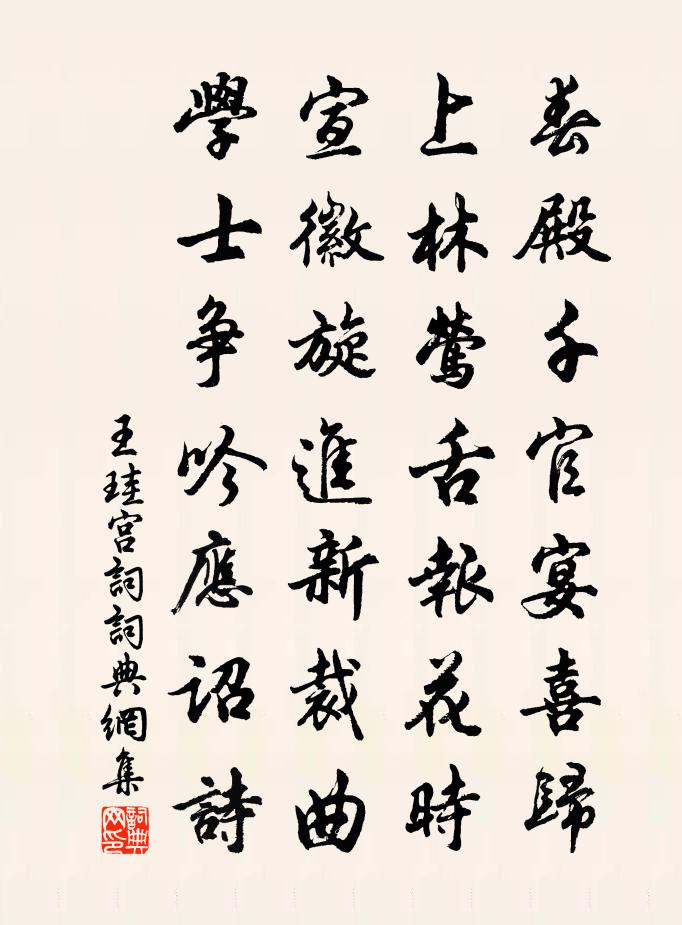 春殿千官宴喜歸
上林鶯舌報花時
宣徽旋進新裁曲
學士争吟應詔詩
王珪宮詞詞典網集
詞典網印